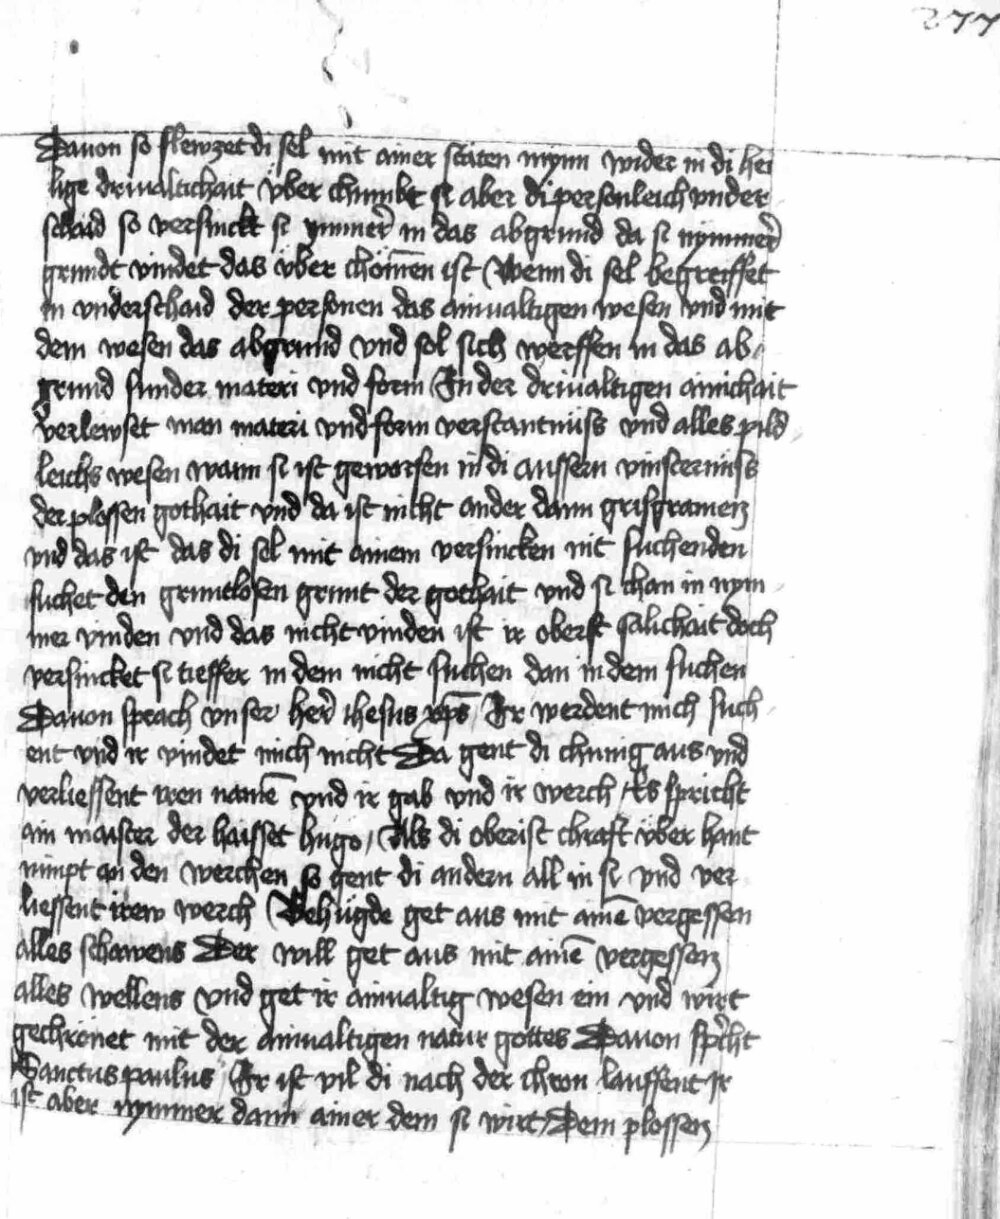 277
Dauon so flewzet di sel mit ainer stäten mynn wider in di hei
lige driualtichait vber chumbt si aber di personleich vnder
schaid so versinckt si ymmer̄ in das abgrund da si nymmer̄
grundt vindet das vber chöm̄en ist Wenn di sel begreiffet
in vnderschaid der personen das ainualtigen wesen vnd mit
dem wesen das abgrund vnd sol sich werffen in das ab
grund sunder materi vnd form In der driualtigen ainichait
verlewset man materi vnd form verstantnüss vnd alles pild
leichs wesen wann si ist geworfen in di aussern vinsternüss
der plossen gothait vnd da ist nicht ander dann grisgramen
vnd das ist das di sel mit ainem versincken nit suchenden
suchet den gruntlosen grunt der gothait vnd si chan in nym
mer vinden vnd das nicht vinden ist ir oberst salichait doch
versincket si tieffer in dem nicht suchen dan in dem suchen
Dauon sprach vnser her̄ ihesus xp̄s / Ir werdent mich such
ent vnd ir vindet mich nicht Da gent di chunig aus vnd
verliessent iren namē vnd ir gab vnd ir werch / Es spricht
ain maister der haisset hugo / Als di oberist chraft vber hant
nimpt an den werchen so gent di andern all in si vnd ver
liessent irew werch Behügde get aus mit ainē vergessen
alles schawens Der will get aus mit ainē vergessen
alles wellens vnd get ir ainualtig wesen ein vnd wirt
gechrönet mit der ainualtigen natur gottes Dauon sp̄cht
Sanctus paulus Ir ist vil di nach der chron lauffent Ir
ist aber nymmer dann ainer dem si wirt / Dem plossen